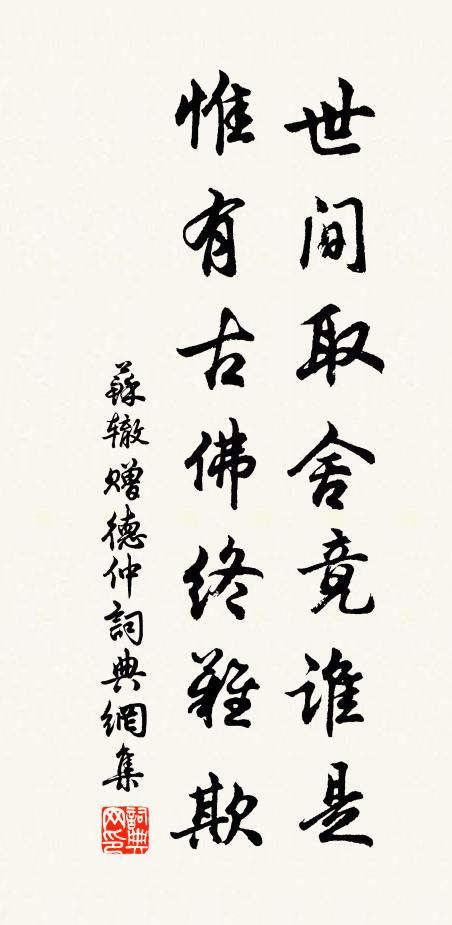 世间取舍竟谁是
惟有古佛终難欺
蘇辙赠德仲詞典網集
詞典网印